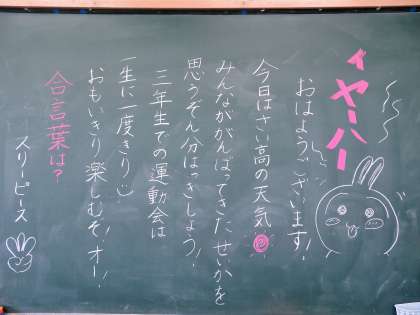 イヤーハー
おはようございます!
今日はさい高の天気
みんながんばってきたせいかを
思うぞん分はっきしよう!
三年生での運動会は
一生に一度きり
おもいきり楽しむぞ、オー!
合言葉は?
スリーピース